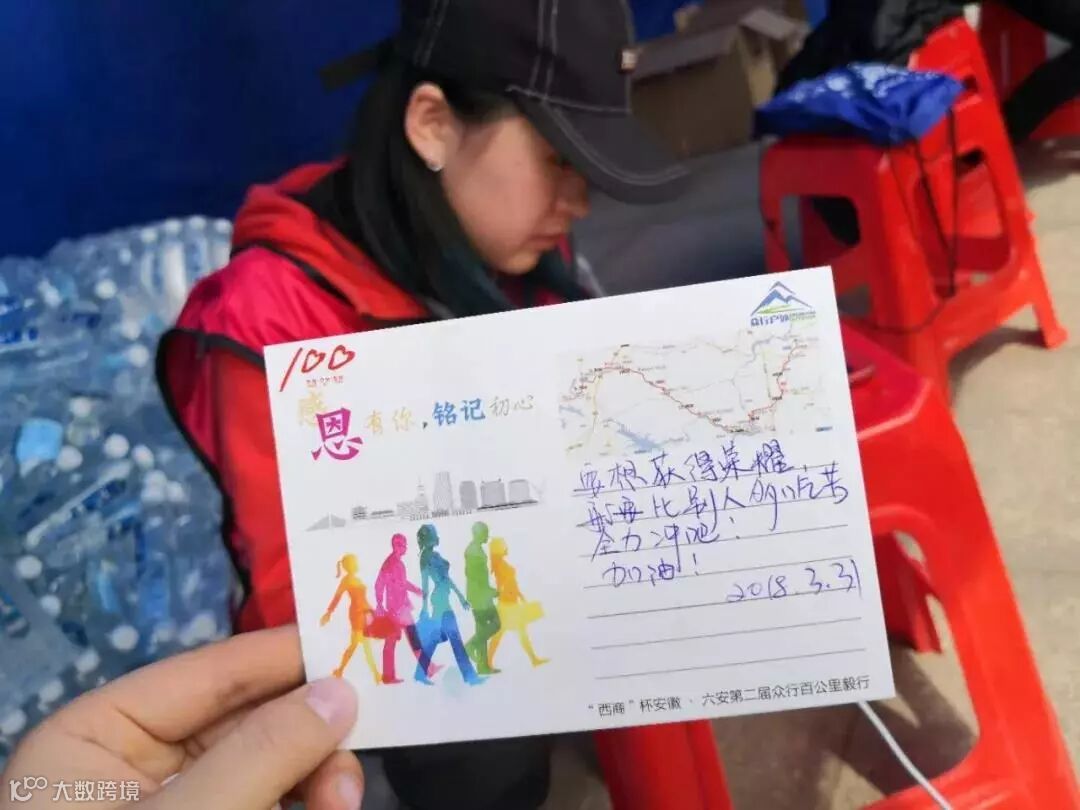 100
感恩有你,铭记初心
众行户外
要想获得荣耀,
就要比别人多吃苦
全力冲吧!
加油!
2018.3.31
“西商”杯安徽、六安第二届众行百公里毅行
大数跨境